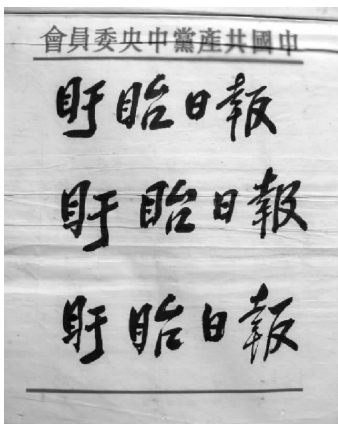 中國共產黨中央委員會
盱眙日報
盱眙日報
盱眙日報